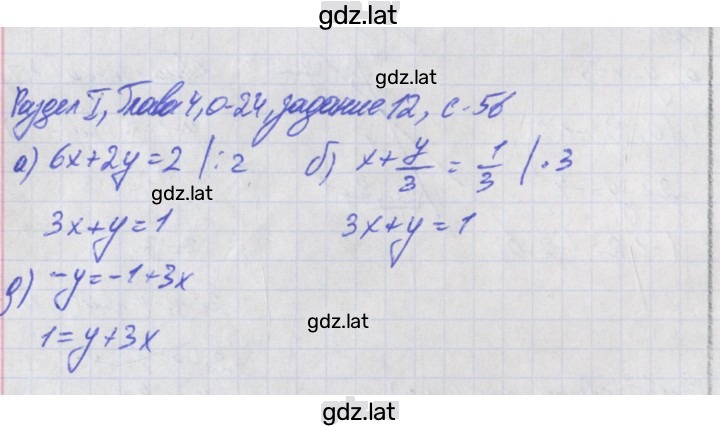 gdz.lat
gdz.lat
Раздел I, Глава 4, 0-24, задание 12, с-56
а) 6x+2y=2 |:2 б) x+y/3=1/3 |·3
gdz.lat
3x+y=1 3x+y=1
д) -y=-1+3x
gdz.lat
1=y+3x
gdz.lat